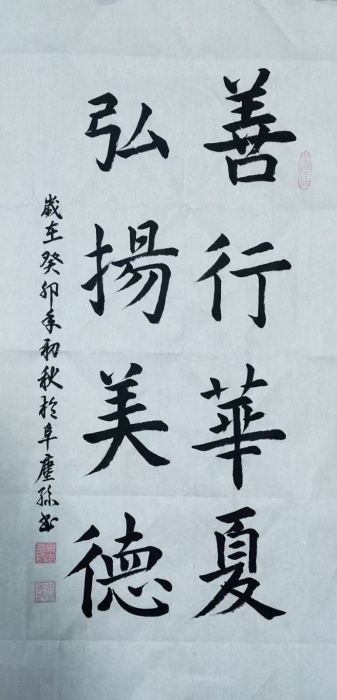 善行華夏
弘揚美德
歲在癸卯年初秋於阜廛孫书